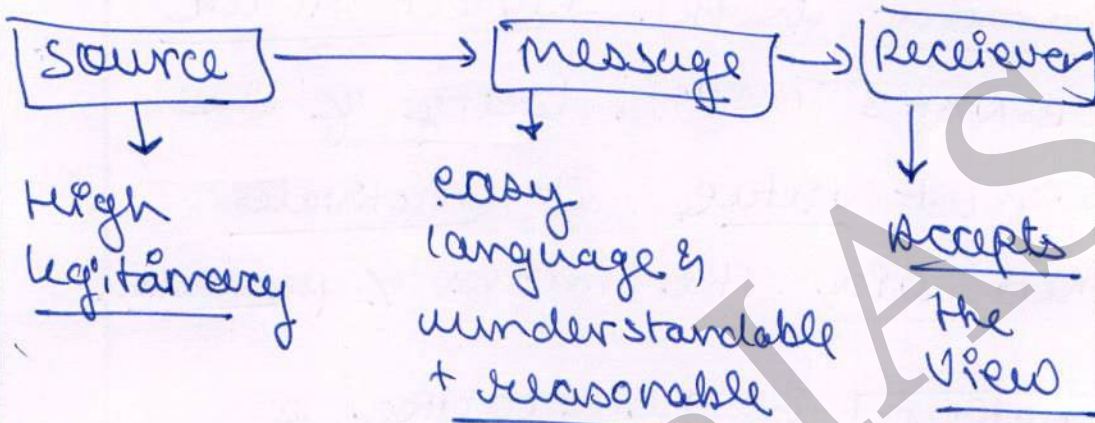 Source → Message → Receiever
High
legitamacy
easy
language &
understandable
+ reasonable
Accepts
the
View
IAS